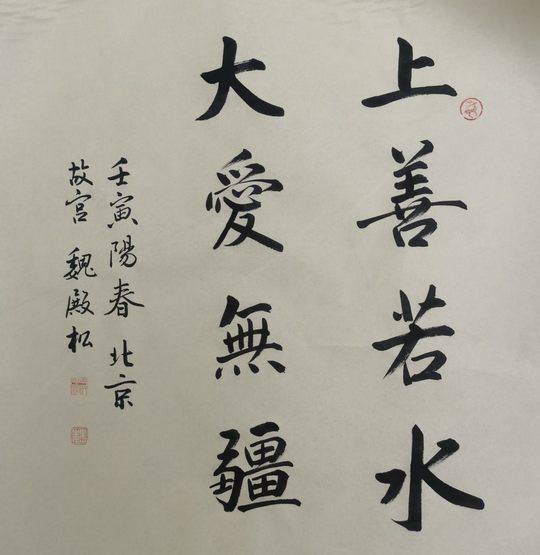 上善若水
大愛無疆
壬寅陽春 北京
故宫 魏殿松